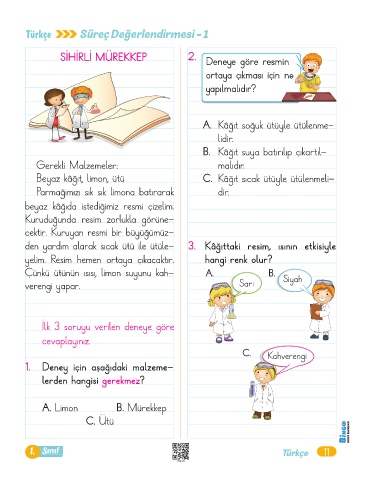 Türkçe Süreç Değerlendirmesi - 1
SİHİRLİ MÜREKKEP
Gerekli Malzemeler:
Beyaz kâğıt, limon, ütü
Parmağımızı sık sık limona batırarak
beyaz kâğıda istediğimiz resmi çizelim.
Kuruduğunda resim zorlukla görüne-
cektir. Kuruyan resmi bir büyüğümüz-
den yardım alarak sıcak ütü ile ütüle-
yelim. Resim hemen ortaya çıkacaktır.
Çünkü ütünün ısısı, limon suyunu kah-
verengi yapar.
İlk 3 soruyu verilen deneye göre
cevaplayınız.
1. Deney için aşağıdaki malzeme-
lerden hangisi gerekmez?
A. Limon B. Mürekkep
C. Ütü
2. Deneye göre resmin
ortaya çıkması için ne
yapılmalıdır?
A. Kâğıt soğuk ütüyle ütülenme-
lidir.
B. Kâğıt suya batırılıp çıkartıl-
malıdır.
C. Kâğıt sıcak ütüyle ütülenmeli-
dir.
3. Kâğıttaki resim, ısının etkisiyle
hangi renk olur?
A. Sarı B. Siyah
C. Kahverengi
1. Sınıf
Türkçe 11